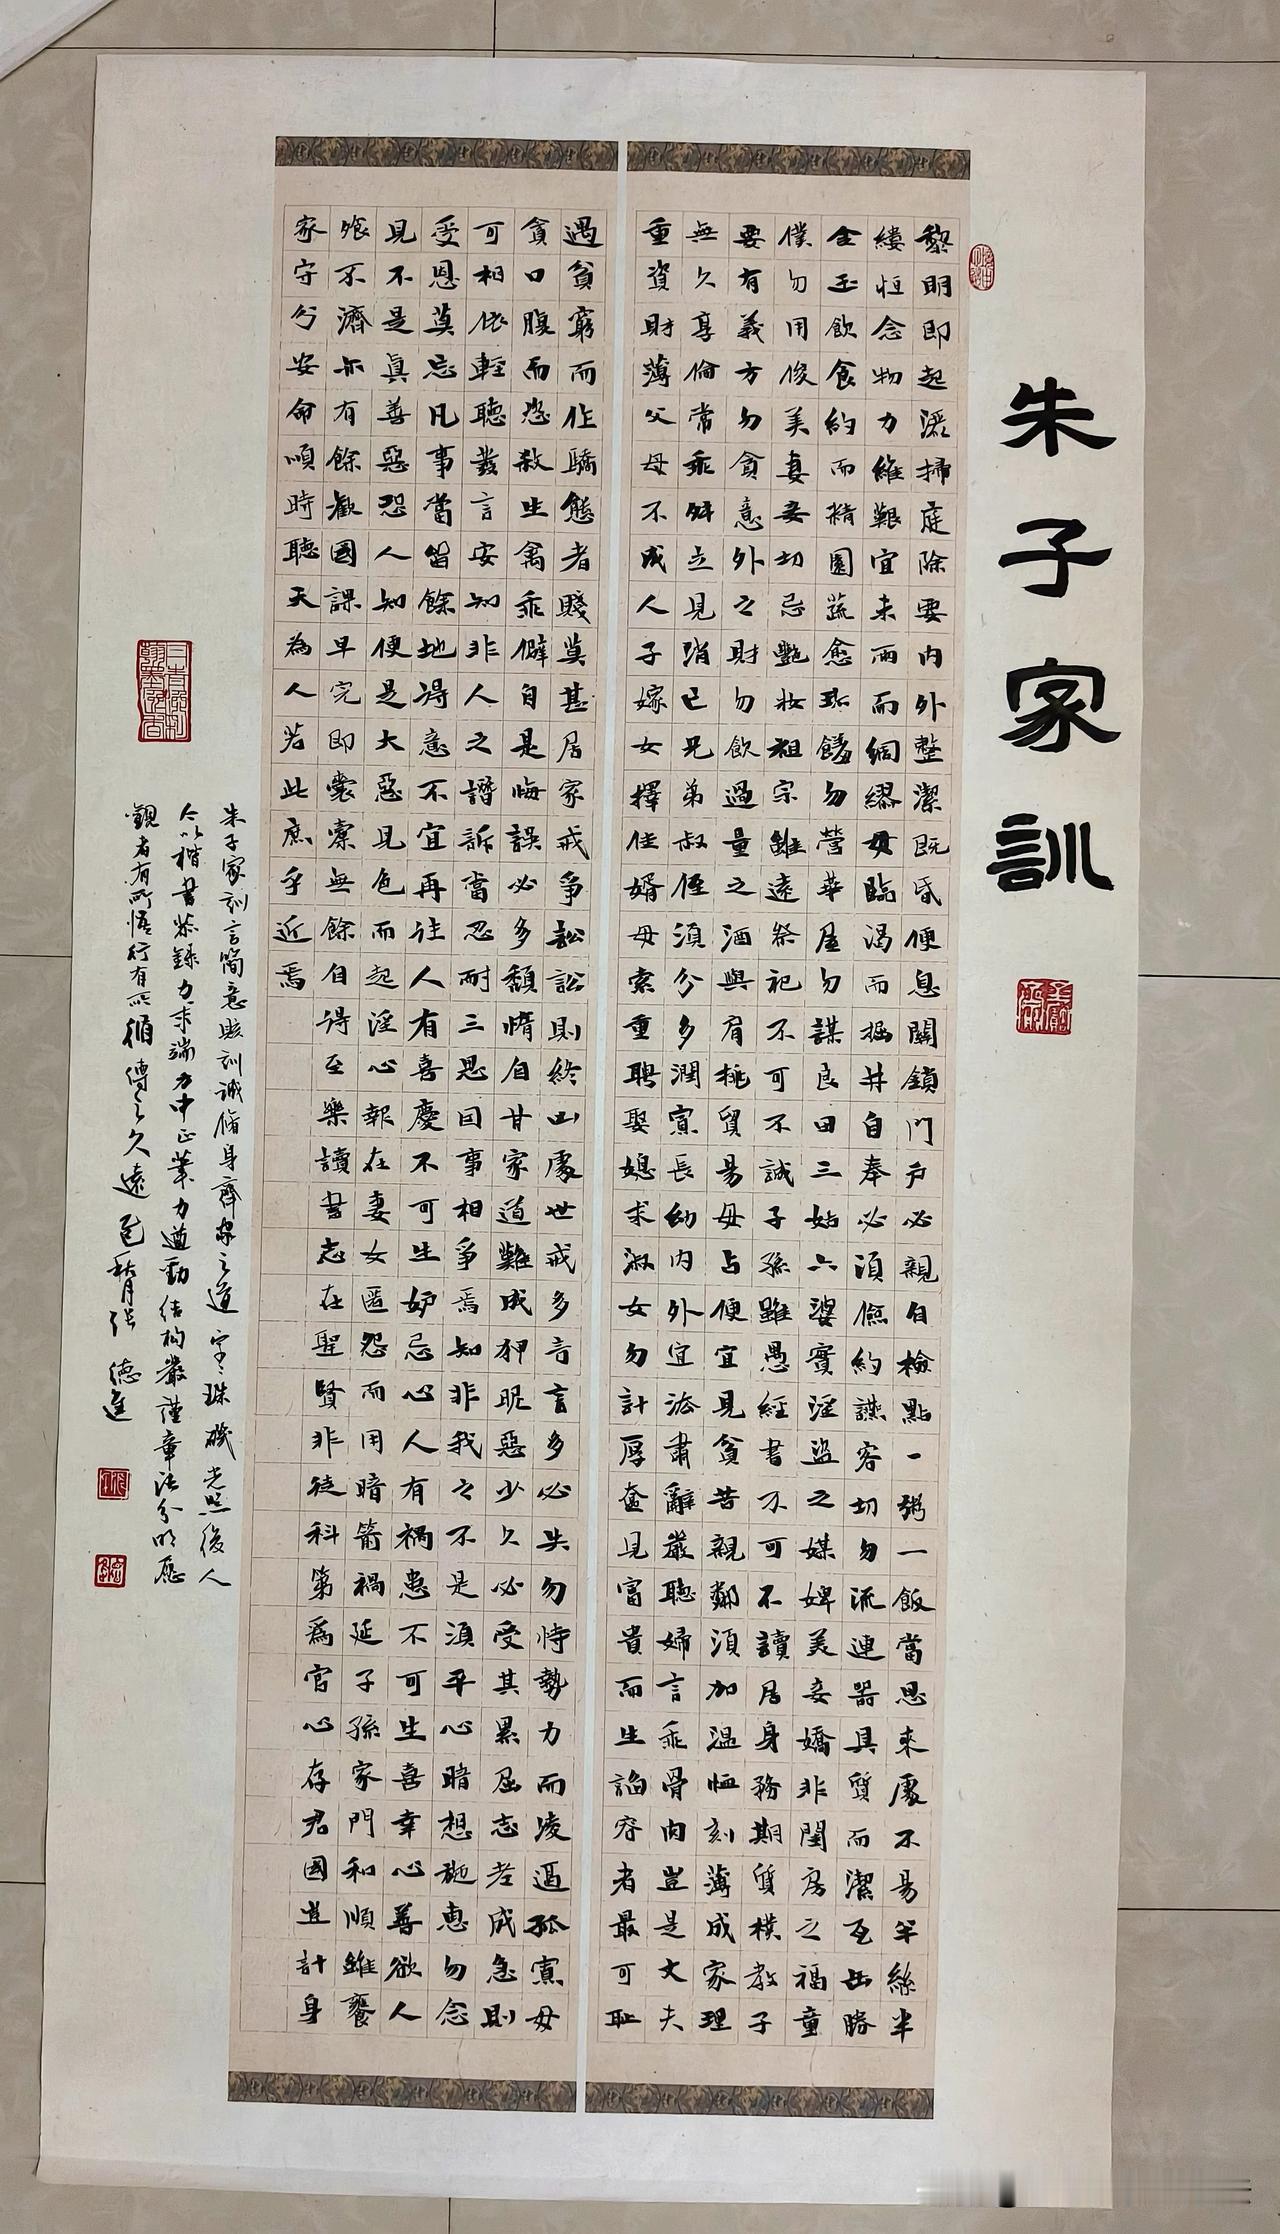 朱子家訓
黎明即起洒掃庭除要内外整潔既昏便息關鎖門户必親自檢點一粥一飯當思來處不易半絲半
縷恒念物力維艱宜未雨而綢繆毋臨渴而掘井自奉必須儉約讌客切勿流連器具質而潔瓦缶勝
金玉飲食約而精園蔬愈珍饈勿營華屋勿謀良田三姑六婆實淫盜之媒婢美妾嬌非閨房之福童
僕勿用俊美妻妾切忌艷妝祖宗雖遠祭祀不可不誠子孫雖愚經書不可不讀居身務期質樸教子
要有義方勿貪意外之財勿飲過量之酒與肩挑貿易毋占便宜見貧苦親鄰須加温恤刻薄成家理
無久享倫常乖舛立見消已兄弟叔侄須分多潤寡長幼内外宜法肅辭嚴聽婦言乖骨肉豈是丈夫
重資財薄父母不成人子嫁女擇佳婿毋索重聘娶媳求淑女勿計厚奩見富貴而生諂容者最可恥
遇貧窮而作驕態者賤莫甚居家戒爭訟訟則終凶處世戒多言言多必失勿恃勢力而凌逼孤寡毋
貪口腹而恣殺生禽乖僻自是悔誤必多頹惰自甘家道難成狎昵惡少久必受其累屈志老成急則
可相依輕聽發言安知非人之譖訴當忍耐三思因事相爭焉知非我之不是須平心暗想施惠勿念
受恩莫忘凡事當留餘地得意不宜再往人有喜慶不可生妒忌心人有禍患不可生喜幸心善欲人
見不是真善惡恐人知便是大惡見色而起淫心報在妻女匿怨而用暗箭禍延子孫家門和順雖饔
飧不濟亦有餘歡國課早完即囊橐無餘自得至樂讀書志在聖賢非徒科第為官心存君國豈計身
家守分安命順時聽天為人若此庶乎近焉
朱子家訓言簡意賅訓誡脩身齊家之道字字珠磯光照後人
今以楷書恭錄力求端方中正筆力遒勁結構嚴謹章法分明願
觀者有所悟行有所循傳之久遠 秋月張德進